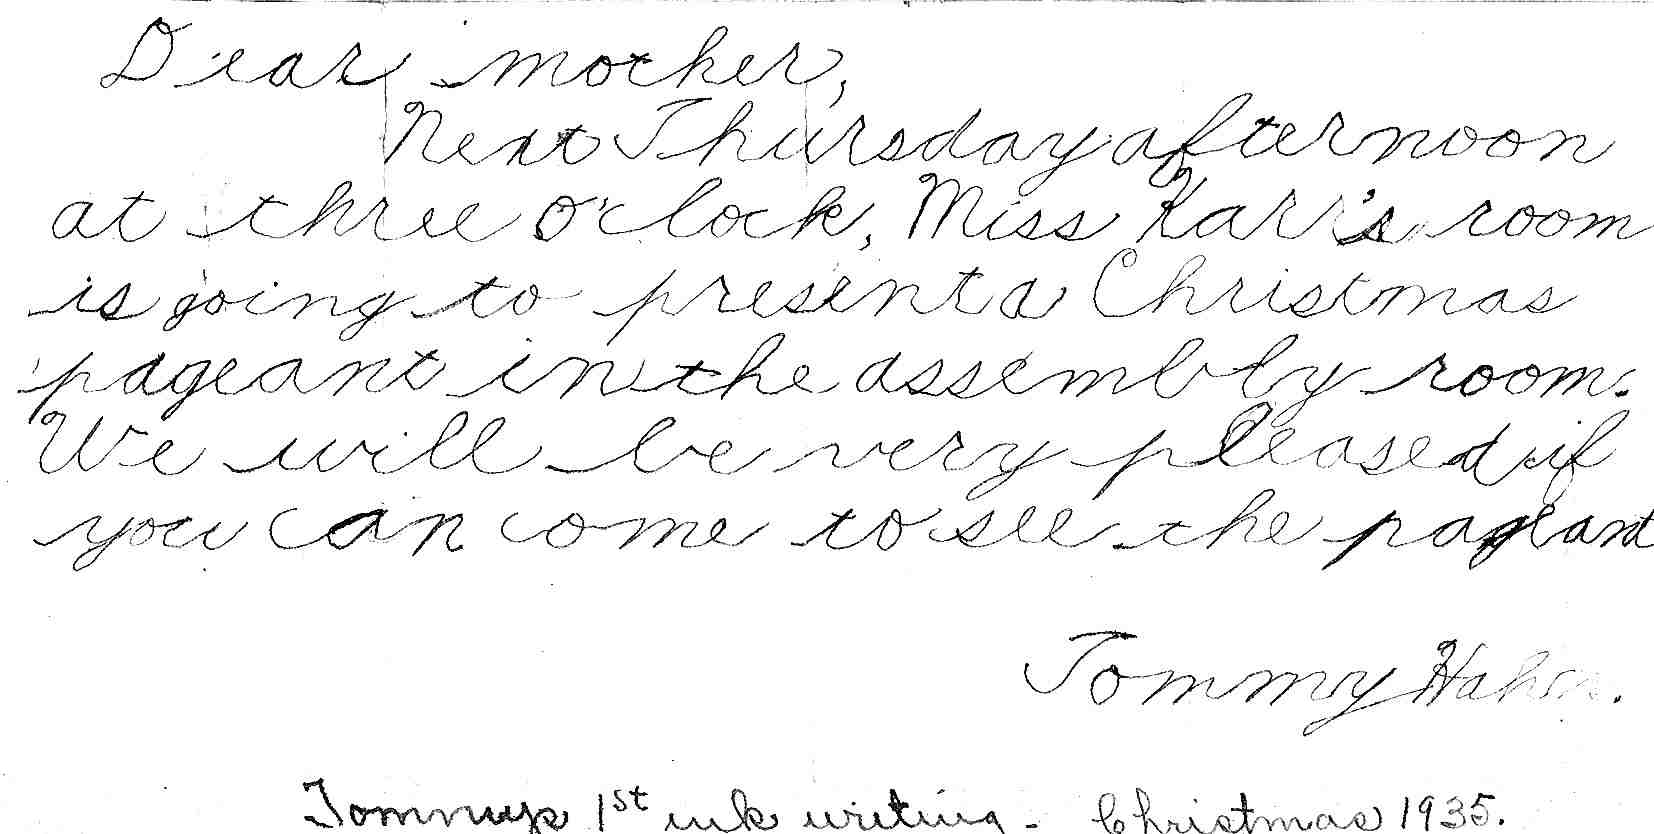 Dear mother,
Next Thursday afternoon
at three o'clock, Miss Karr's room
is going to present a Christmas
pageant in the assembly room.
We will be very pleased if
you can come to see the pageant
Tommy Hahn.
Tommys 1st ink writing - Christmas 1935.